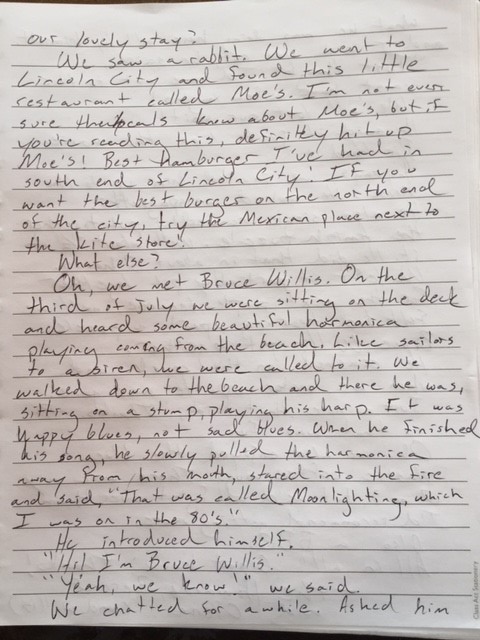 our lovely stay?
We saw a rabbit. We went to
Lincoln City and found this little
restaurant called Moe's. I'm not even
sure the locals know about Moe's, but if
you're reading this, definitley hit up
Moe's! Best Hamburger I've had in
south end of Lincoln City! If you
want the best burger on the north end
of the city, try the Mexican place next to
the kite store!
What else?
Oh, we met Bruce Willis. On the
third of July we were sitting on the deck
and heard some beautiful harmonica
playing coming from the beach. Like sailors
to a siren, we were called to it. We
walked down to the beach and there he was,
sitting on a stump, playing his harp. It was
happy blues, not sad blues. When he finished
his song, he slowly pulled the harmonica
away from his mouth, stared into the fire
and said, "That was called Moonlighting, which
I was on in the 80's."
He introduced himself.
"Hi! I'm Bruce Willis."
"Yeah, we know!" we said.
We chatted for awhile. Asked him